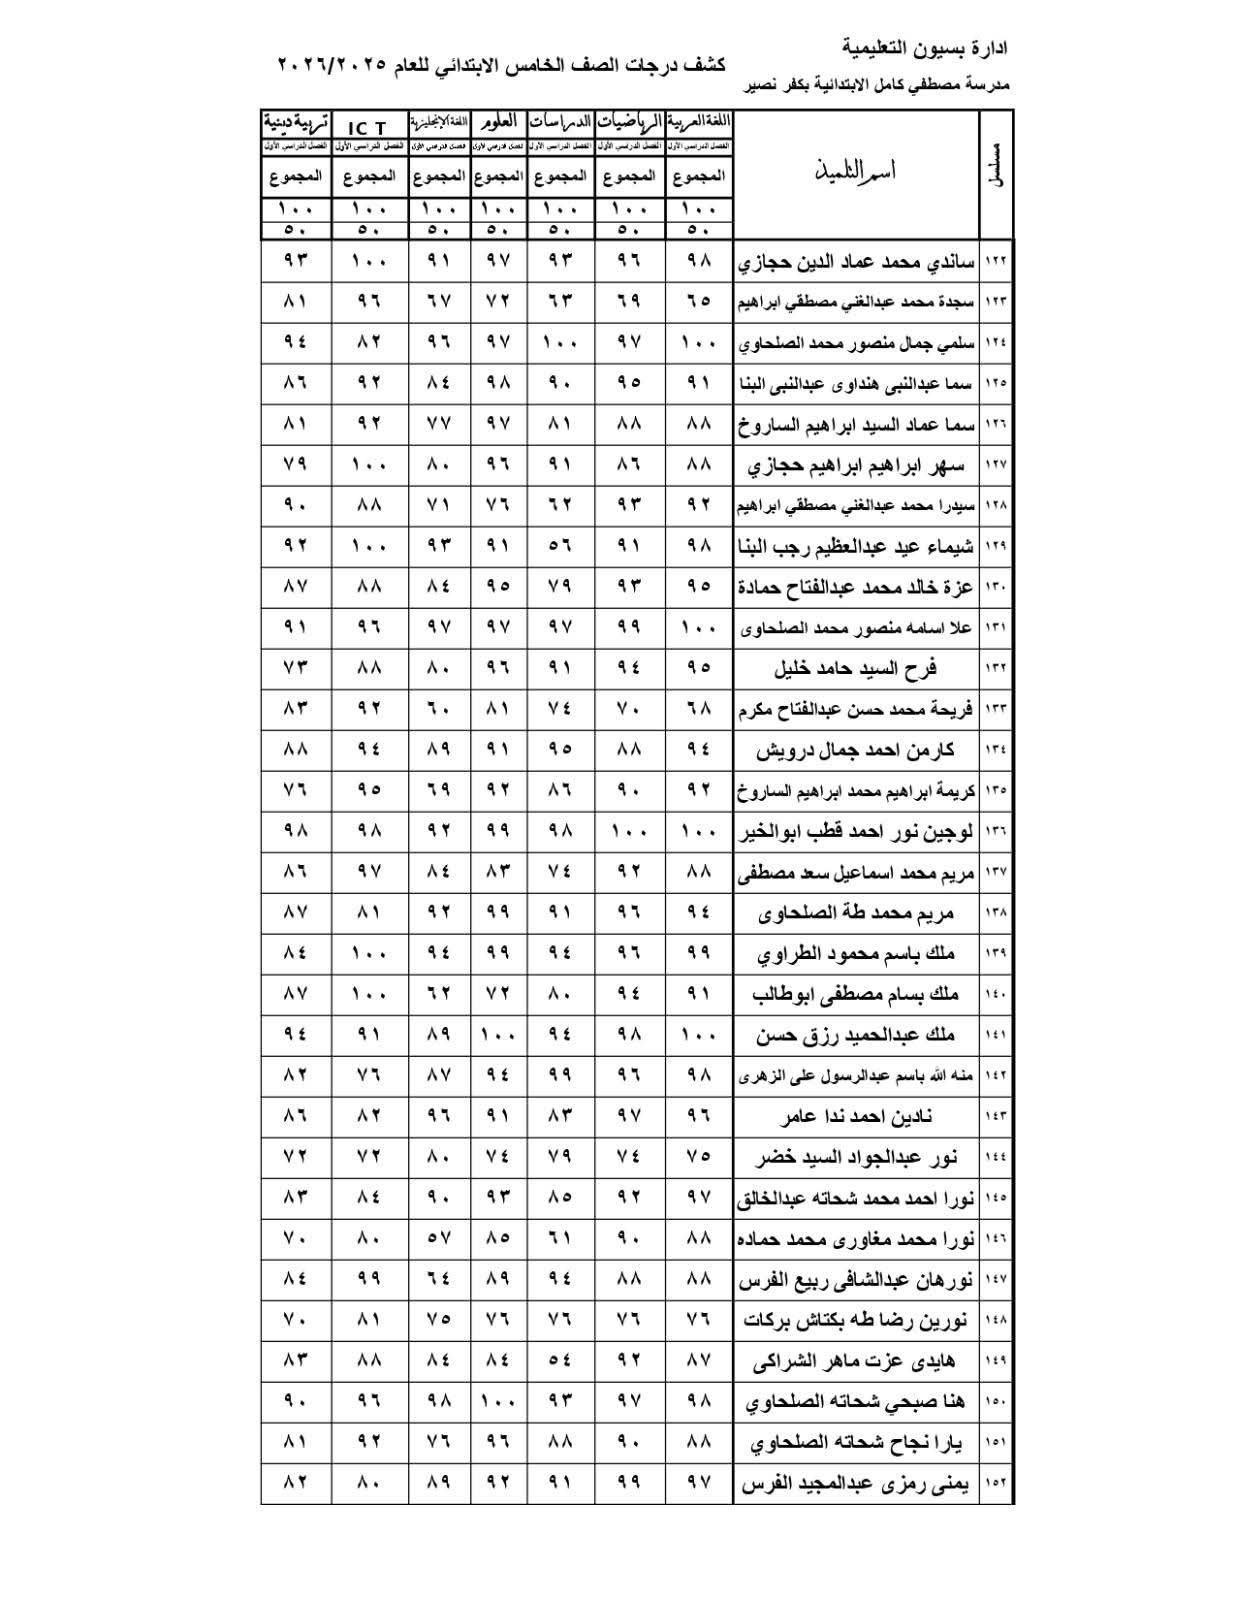 ادارة بسيون التعليمية
كشف درجات الصف الخامس الابتدائي للعام ٢٠٢٦/٢٠٢٥
مدرسة مصطفي كامل الابتدائية بكفر نصير
مسلسل اسم التلميذ اللغة العربية الرياضيات الدراسات العلوم اللغة الإنجليزية IC T تربية دينية
الفصل الدراسي الأول الفصل الدراسي الأول الفصل الدراسي الأول الفصل الدراسي الأول الفصل الدراسي الأول الفصل الدراسي الأول الفصل الدراسي الأول
المجموع المجموع المجموع المجموع المجموع المجموع المجموع
١٠٠ ١٠٠ ١٠٠ ١٠٠ ١٠٠ ١٠٠ ١٠٠
٥٠ ٥٠ ٥٠ ٥٠ ٥٠ ٥٠ ٥٠
١٢٢ ساندي محمد عماد الدين حجازي ٩٨ ٩٦ ٩٣ ٩٧ ٩١ ١٠٠ ٩٣
١٢٣ سجدة محمد عبدالغني مصطفي ابراهيم ٦٥ ٦٩ ٦٣ ٧٢ ٦٧ ٩٦ ٨١
١٢٤ سلمي جمال منصور محمد الصلحاوي ١٠٠ ٩٧ ١٠٠ ٩٧ ٩٦ ٨٢ ٩٤
١٢٥ سما عبدالنبى هنداوى عبدالنبى البنا ٩١ ٩٥ ٩٠ ٩٨ ٨٤ ٩٢ ٨٦
١٢٦ سما عماد السيد ابراهيم الساروخ ٨٨ ٨٨ ٨١ ٩٧ ٧٧ ٩٢ ٨١
١٢٧ سهر ابراهيم ابراهيم حجازي ٨٨ ٨٦ ٩١ ٩٦ ٨٠ ١٠٠ ٧٩
١٢٨ سيدرا محمد عبدالغني مصطفي ابراهيم ٩٢ ٩٣ ٦٢ ٧٦ ٧١ ٨٨ ٩٠
١٢٩ شيماء عيد عبدالعظيم رجب البنا ٩٨ ٩١ ٥٦ ٩١ ٩٣ ١٠٠ ٩٢
١٣٠ عزة خالد محمد عبدالفتاح حمادة ٩٥ ٩٣ ٧٩ ٩٥ ٨٤ ٨٨ ٨٧
١٣١ علا اسامه منصور محمد الصلحاوى ١٠٠ ٩٩ ٩٧ ٩٧ ٩٧ ٩٦ ٩١
١٣٢ فرح السيد حامد خليل ٩٥ ٩٤ ٩١ ٩٦ ٨٠ ٨٨ ٧٣
١٣٣ فريحة محمد حسن عبدالفتاح مكرم ٦٨ ٧٠ ٧٤ ٨١ ٦٠ ٩٢ ٨٣
١٣٤ كارمن احمد جمال درويش ٩٤ ٨٨ ٩٥ ٩١ ٨٩ ٩٤ ٨٨
١٣٥ كريمة ابراهيم محمد ابراهيم الساروخ ٩٢ ٩٠ ٨٦ ٩٢ ٦٩ ٩٥ ٧٦
١٣٦ لوجين نور احمد قطب ابوالخير ١٠٠ ١٠٠ ٩٨ ٩٩ ٩٢ ٩٨ ٩٨
١٣٧ مريم محمد اسماعيل سعد مصطفى ٨٨ ٩٢ ٧٤ ٨٣ ٨٤ ٩٧ ٨٦
١٣٨ مريم محمد طة الصلحاوى ٩٤ ٩٦ ٩١ ٩٩ ٩٢ ٨١ ٨٧
١٣٩ ملك باسم محمود الطراوي ٩٩ ٩٦ ٩٤ ٩٩ ٩٤ ١٠٠ ٨٤
١٤٠ ملك بسام مصطفى ابوطالب ٩١ ٩٤ ٨٠ ٧٢ ٦٢ ١٠٠ ٨٧
١٤١ ملك عبدالحميد رزق حسن ١٠٠ ٩٨ ٩٤ ١٠٠ ٨٩ ٩١ ٩٤
١٤٢ منه الله باسم عبدالرسول على الزهرى ٩٨ ٩٦ ٩٩ ٩٤ ٨٧ ٧٦ ٨٢
١٤٣ نادين احمد ندا عامر ٩٦ ٩٧ ٨٣ ٩١ ٩٦ ٨٢ ٨٦
١٤٤ نور عبدالجواد السيد خضر ٧٥ ٧٤ ٧٩ ٧٤ ٨٠ ٧٢ ٧٢
١٤٥ نورا احمد محمد شحاته عبدالخالق ٩٧ ٩٢ ٨٥ ٩٣ ٩٠ ٨٤ ٨٣
١٤٦ نورا محمد مغاورى محمد حماده ٨٨ ٩٠ ٦١ ٨٥ ٥٧ ٨٠ ٧٠
١٤٧ نورهان عبدالشافى ربيع الفرس ٨٨ ٨٨ ٩٤ ٨٩ ٦٤ ٩٩ ٨٤
١٤٨ نورين رضا طه بكتاش بركات ٧٦ ٧٦ ٧٦ ٧٦ ٧٥ ٨١ ٧٠
١٤٩ هايدى عزت ماهر الشراكى ٨٧ ٩٢ ٥٤ ٨٤ ٨٤ ٨٨ ٨٣
١٥٠ هنا صبحي شحاته الصلحاوي ٩٨ ٩٧ ٩٣ ١٠٠ ٩٨ ٩٦ ٩٠
١٥١ يارا نجاح شحاته الصلحاوي ٨٨ ٩٠ ٨٨ ٩٦ ٧٦ ٩٢ ٨١
١٥٢ يمنى رمزى عبدالمجيد الفرس ٩٧ ٩٩ ٩١ ٩٢ ٨٩ ٨٠ ٨٢